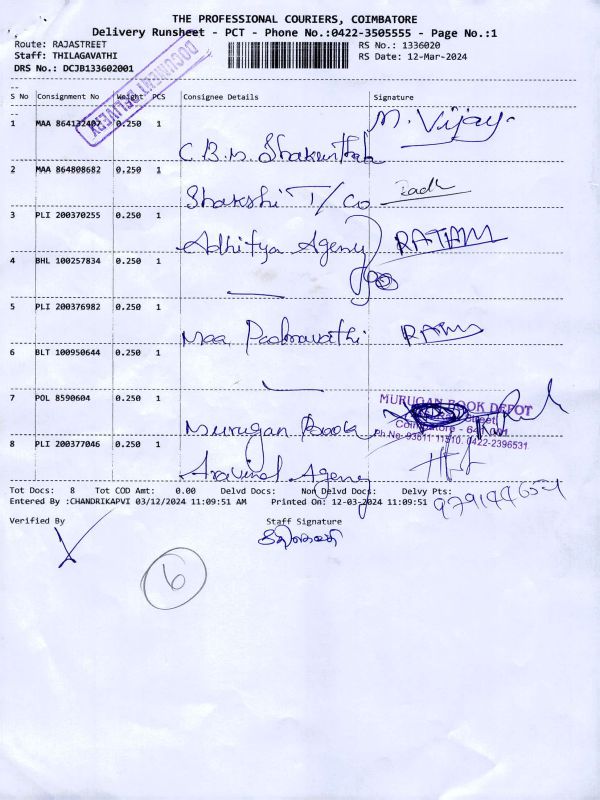 THE PROFESSIONAL COURIERS, COIMBATORE
Delivery Runsheet - PCT - Phone No.:0422-3505555 - Page No.:1
Route: RAJASTREET
RS No.: 1336020
Staff: THILAGAVATHI
RS Date: 12-Mar-2024
DRS No.: DCJB133602001
DOCUMENT DELIVERY
S No Consignment No Weight PCS Consignee Details Signature
1 MAA 864132402 0.250 1 M. Vijay
C.B.M. Shakunthala
2 MAA 864808682 0.250 1
Shakshi T/Co
3 PLI 200370255 0.250 1
Adhitya Agency RATAM
4 BHL 100257834 0.250 1
5 PLI 200376982 0.250 1
Maa Padmavathi
6 BLT 100950644 0.250 1
7 POL 8590604 0.250 1
MURUGAN BOOK DEPOT
Street,
Coimbatore - 641 001.
Ph No: 93611 11510, 0422-2396531
Murugan Book
8 PLI 200377046 0.250 1
Aravind Agency
Tot Docs: 8 Tot COD Amt: 0.00 Delvd Docs: Non Delvd Docs: Delvy Pts:
Entered By :CHANDRIKAPVI 03/12/2024 11:09:51 AM Printed On: 12-03-2024 11:09:51
Verified By Staff Signature
6